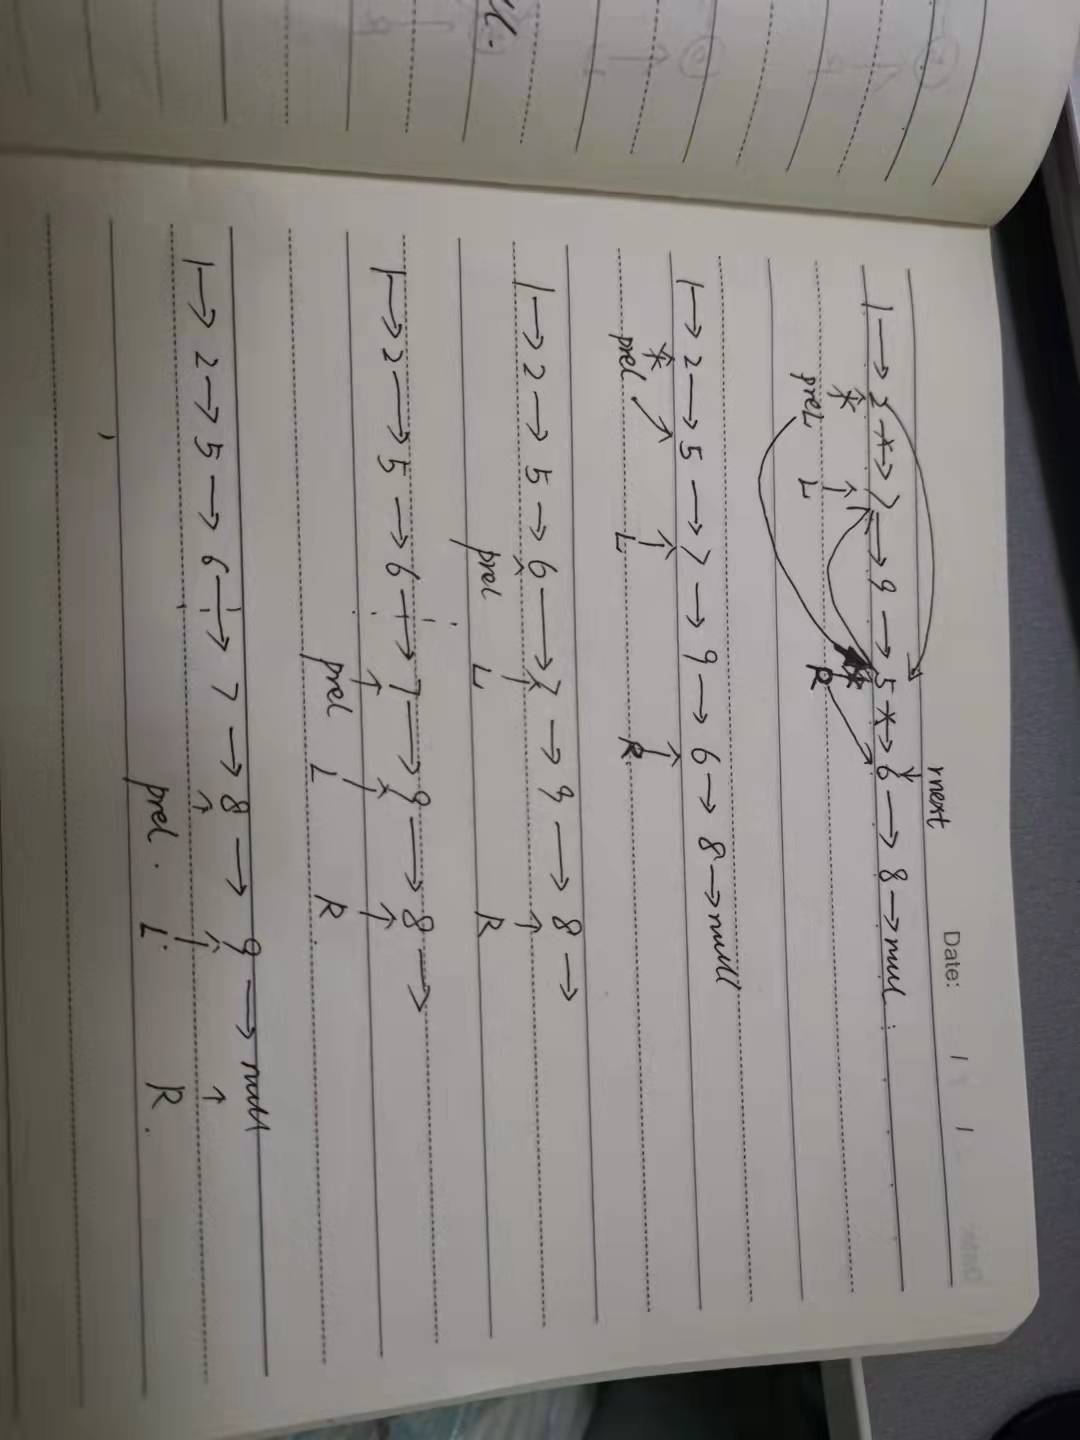 Date:
rnext
1→2→7→9→5→6→8→null
preL L R
1→2→5→7→9→6→8→null
preL L R
1→2→5→6→7→9→8→
preL L R
1→2→5→6→7→9→8→
preL L R
1→2→5→6→7→8→9→null
preL L R